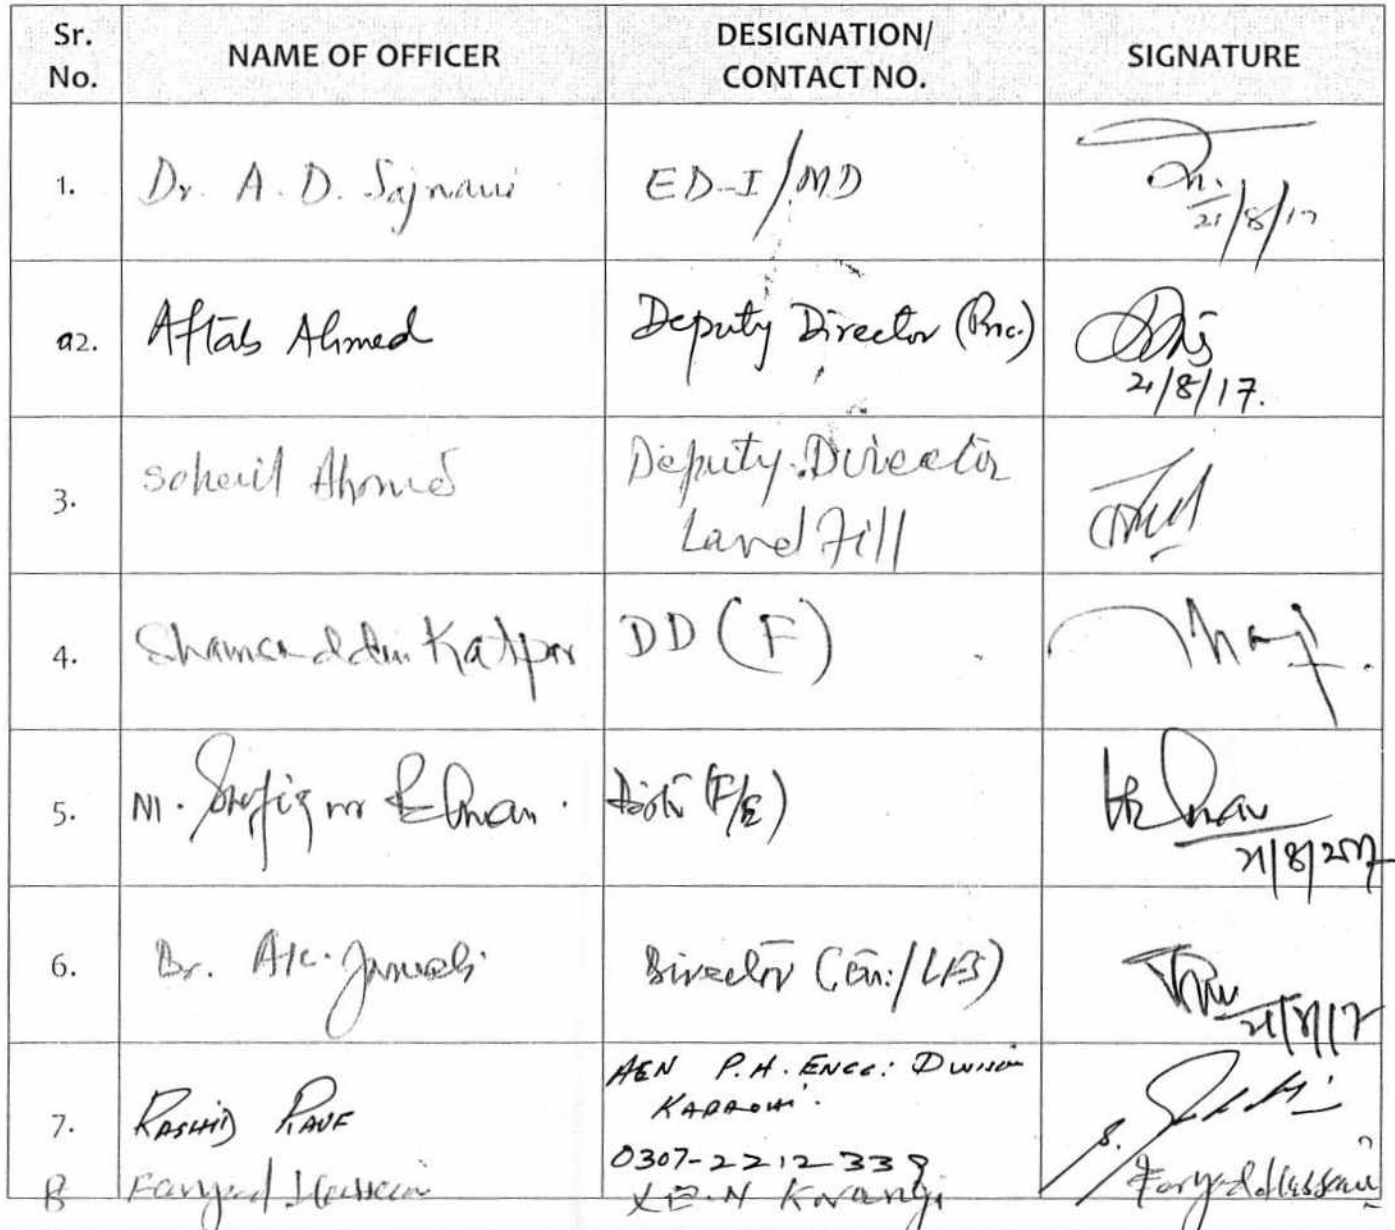 Sr. No.
NAME OF OFFICER
DESIGNATION/
CONTACT NO.
SIGNATURE
1. Dr. A. D. Sajnani ED-I/MD
21/8/17
2. Aftab Ahmed Deputy Director (Proc.)
21/8/17.
3. Soheil Ahmed Deputy Director
Land Fill
4. Shamsuddin Katpar DD (F)
5. M. Shafiq ur Rehman. (F/E)
21/8/2017
6. Dr. A.K. Jamali Director (En:/LFS)
21/8/17
AEN P.H. ENGG: Division
KARACHI.
7. RASHID RAUF
0307-2212338
8 Faryad Hussain XEN Korangi Faryad Hussain